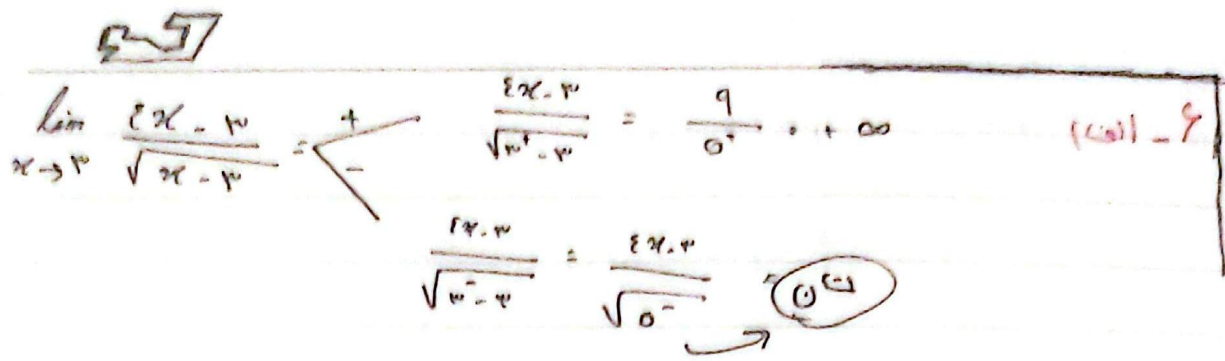 ۶ - (الف)
lim x→۳ (۴x - ۳)/(√(x - ۳)) = < + (۴x - ۳)/(√(۳⁺ - ۳)) = ۹/۰⁺ = +∞
- (۴x - ۳)/(√(۳⁻ - ۳)) = (۴x - ۳)/(√(۰⁻)) =